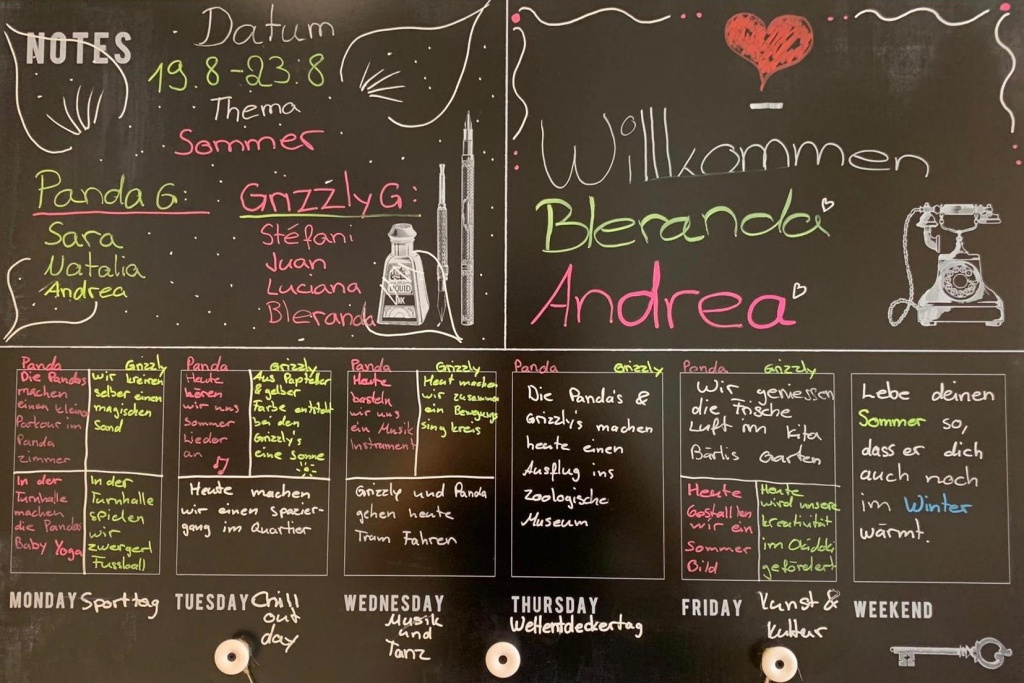 NOTES
Datum
19.8-23.8
Thema
Sommer
Panda G:
Sara
Natalia
Andrea
Grizzly G:
Stéfani
Juan
Luciana
Bleranda
LIQUID
INK
Willkommen
Bleranda
Andrea
Panda
Die Pandas
machen
einen kleine
Parkour im
Panda
Zimmer
Grizzly
Wir kreiren
selber einen
magischen
Sand
In der
Turnhalle
machen
die Pandas
Baby Yoga
In der
Turnhalle
spielen
wir
zwergerl
Fussball
MONDAY Sporttag
Panda
Heute
hören
wir uns
Sommer
Lieder
an
Grizzly
Aus Papteller
& gelber
Farbe entsteht
bei den
Grizzly's
eine Sonne
Heute machen
wir einen spazier-
gang im Quartier
TUESDAY Chill
out
day
Panda
Heute
basteln
wir uns
ein Musik
Instrument
Grizzly
Heut machen
wir zusammen
ein Bewegung
sing kreis
Grizzly und Panda
gehen heute
Tram Fahren
WEDNESDAY
Musik
und
Tanz
Panda Grizzly
Die Panda's &
Grizzly's machen
heute einen
Ausflug ins
Zoologische
Museum
THURSDAY
Weltentdeckertag
Panda Grizzly
Wir geniessen
die Frische
Luft im Kita
Bärlis Garten
Heute
Gestallten
wir ein
Sommer
Bild
Heute
wird unsere
kreativität
im
gefördert
FRIDAY Kunst &
Kultur
Lebe deinen
Sommer so,
dass er dich
auch noch
im Winter
wärmt.
WEEKEND